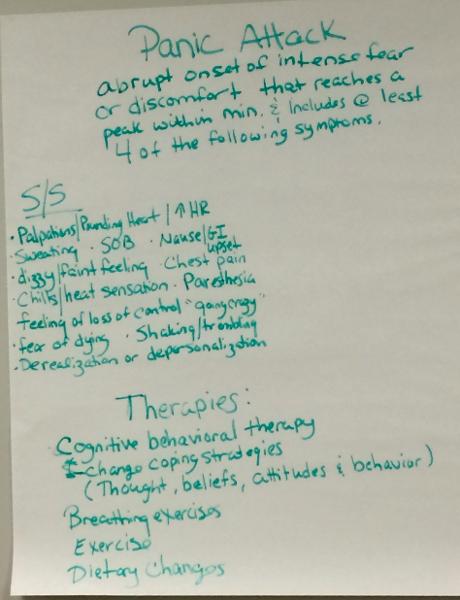 Panic Attack
abrupt onset of intense fear
or discomfort that reaches a
peak within min. & includes @ least
4 of the following symptoms.
S/S
• Palpations/Pounding Heart / ↑ HR
• Sweating • SOB • Nause/GI upset
• dizzy/faint feeling Chest pain
• Chills/heat sensation • Paresthesia
feeling of loss of control "going crazy"
• fear of dying • Shaking/trembling
• Derealization or depersonalization
Therapies:
Cognitive behavioral therapy
Change coping strategies
(Thought, beliefs, attitudes & behavior)
Breathing exercises
Exercise
Dietary Changes